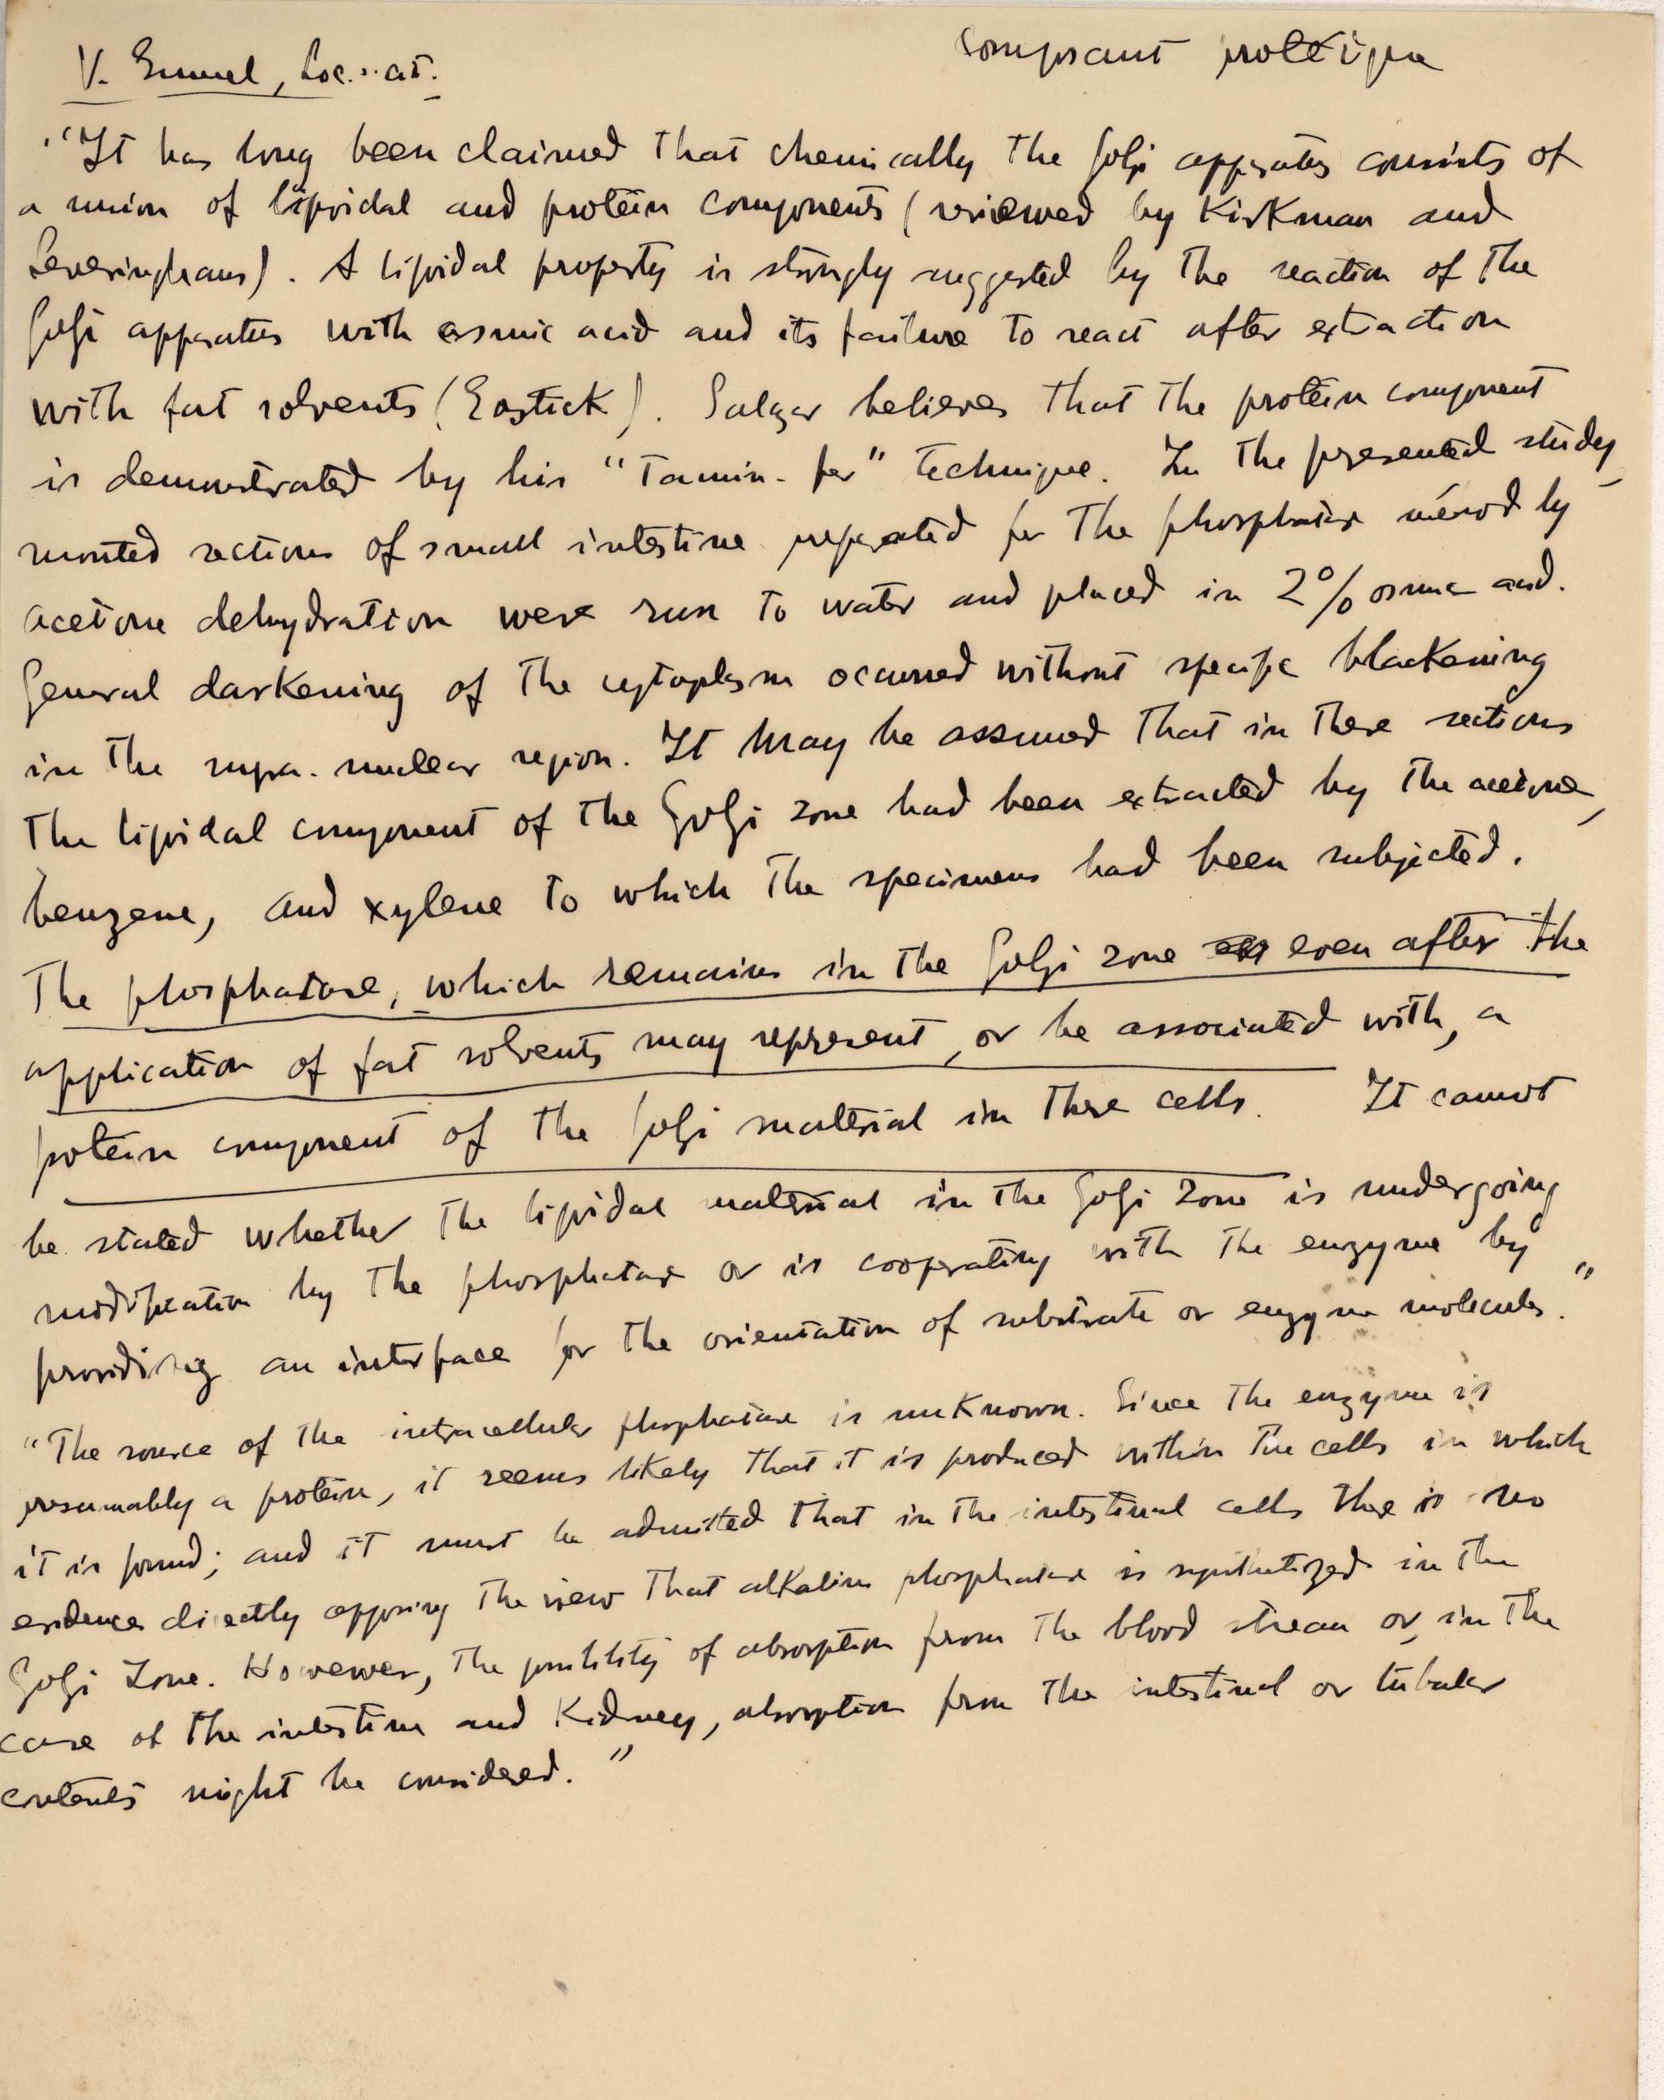 V. Emmel, Loc. cit.
composant protéique
"It has long been claimed that chemically the Golgi apparatus consists of
a union of lipoidal and protein components (reviewed by Kirkman and
Severinghaus). A lipoidal property is strongly suggested by the reaction of the
Golgi apparatus with osmic acid and its failure to react after extraction
with fat solvents (Eastick). Salazar believes that the protein component
is demonstrated by his "Tannin-fer" technique. In the presented study
mounted sections of small intestine prepared for the phosphatase method by
acetone dehydration were run to water and placed in 2% osmic acid.
General darkening of the cytoplasm occurred without specific blackening
in the supra-nuclear region. It may be assumed that in these sections
the lipoidal component of the Golgi zone had been extracted by the acetone,
benzene, and xylene to which the specimens had been subjected.
The phosphatase, which remains in the Golgi zone even after the
application of fat solvents may represent, or be associated with, a
protein component of the Golgi material in these cells. It cannot
be stated whether the lipoidal material in the Golgi zone is undergoing
modification by the phosphatase or is cooperating with the enzyme by
providing an interface for the orientation of substrate or enzyme molecules."
"The source of the intracellular phosphatase is unknown. Since the enzyme is
presumably a protein, it seems likely that it is produced within the cells in which
it is found; and it must be admitted that in the intestinal cells there is no
evidence directly opposing the view that alkaline phosphatase is synthetized in the
Golgi zone. However, the possibility of absorption from the blood stream or, in the
case of the intestine and kidney, absorption from the intestinal or tubular
contents might be considered."